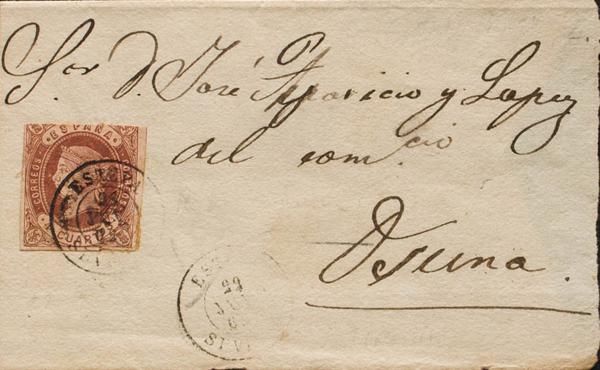 Sor D. José Aparicio y Lopez
del com.cio
Osuna.
ESPAÑA
CORREOS
CUARTOS
ESTEPA
ES
29